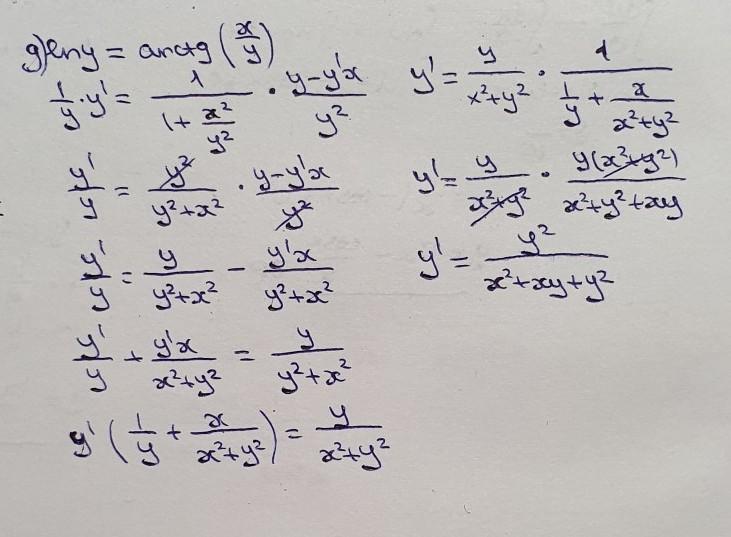 g) ln y = arctg (x/y)
1/y · y' = 1/(1 + x²/y²) · (y - y'x)/y²
y'/y = y²/(y² + x²) · (y - y'x)/y²
y'/y = y/(y² + x²) - y'x/(y² + x²)
y'/y + y'x/(x² + y²) = y/(y² + x²)
y' (1/y + x/(x² + y²)) = y/(x² + y²)
y' = y/(x² + y²) · 1/(1/y + x/(x² + y²))
y' = y/(x² + y²) · y(x² + y²)/(x² + y² + xy)
y' = y²/(x² + xy + y²)